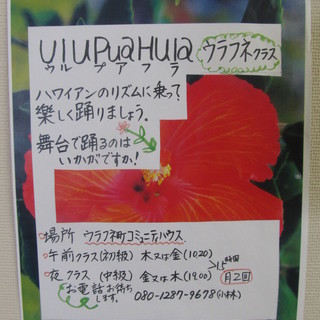 UluPuaHula
ウル プア フラ
ウラフネクラス
ハワイアンのリズムに乗って?
楽しく踊りましょう。
舞台で踊るのは
いかがですか!
場所 ウラフネ町コミュニティハウス
午前クラス(初級) 木又は金(10:20)
夜クラス (中級) 金又は木(19:00)
>1.5時間
月2回
お電話お待ち
します。
080-1287-9678(小林)